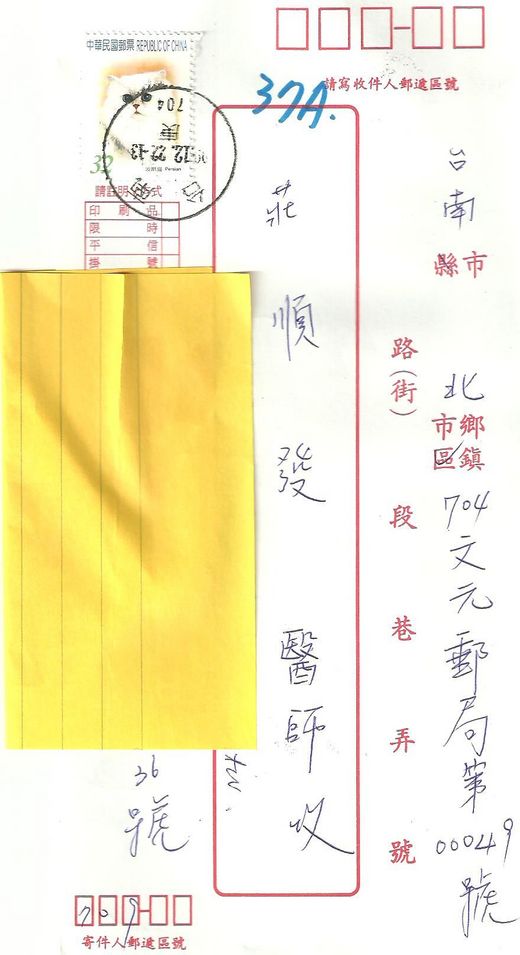 中華民國郵票 REPUBLIC OF CHINA
32
波斯貓 Persian
704
庚
.12.22-13
請寫收件人郵遞區號
37A.
台南縣市
北鄉鎮市區
704文元郵局第00049號
路(街)段巷弄號
莊順發醫師收
印刷品
限時
平信
掛號
36號
709
寄件人郵遞區號